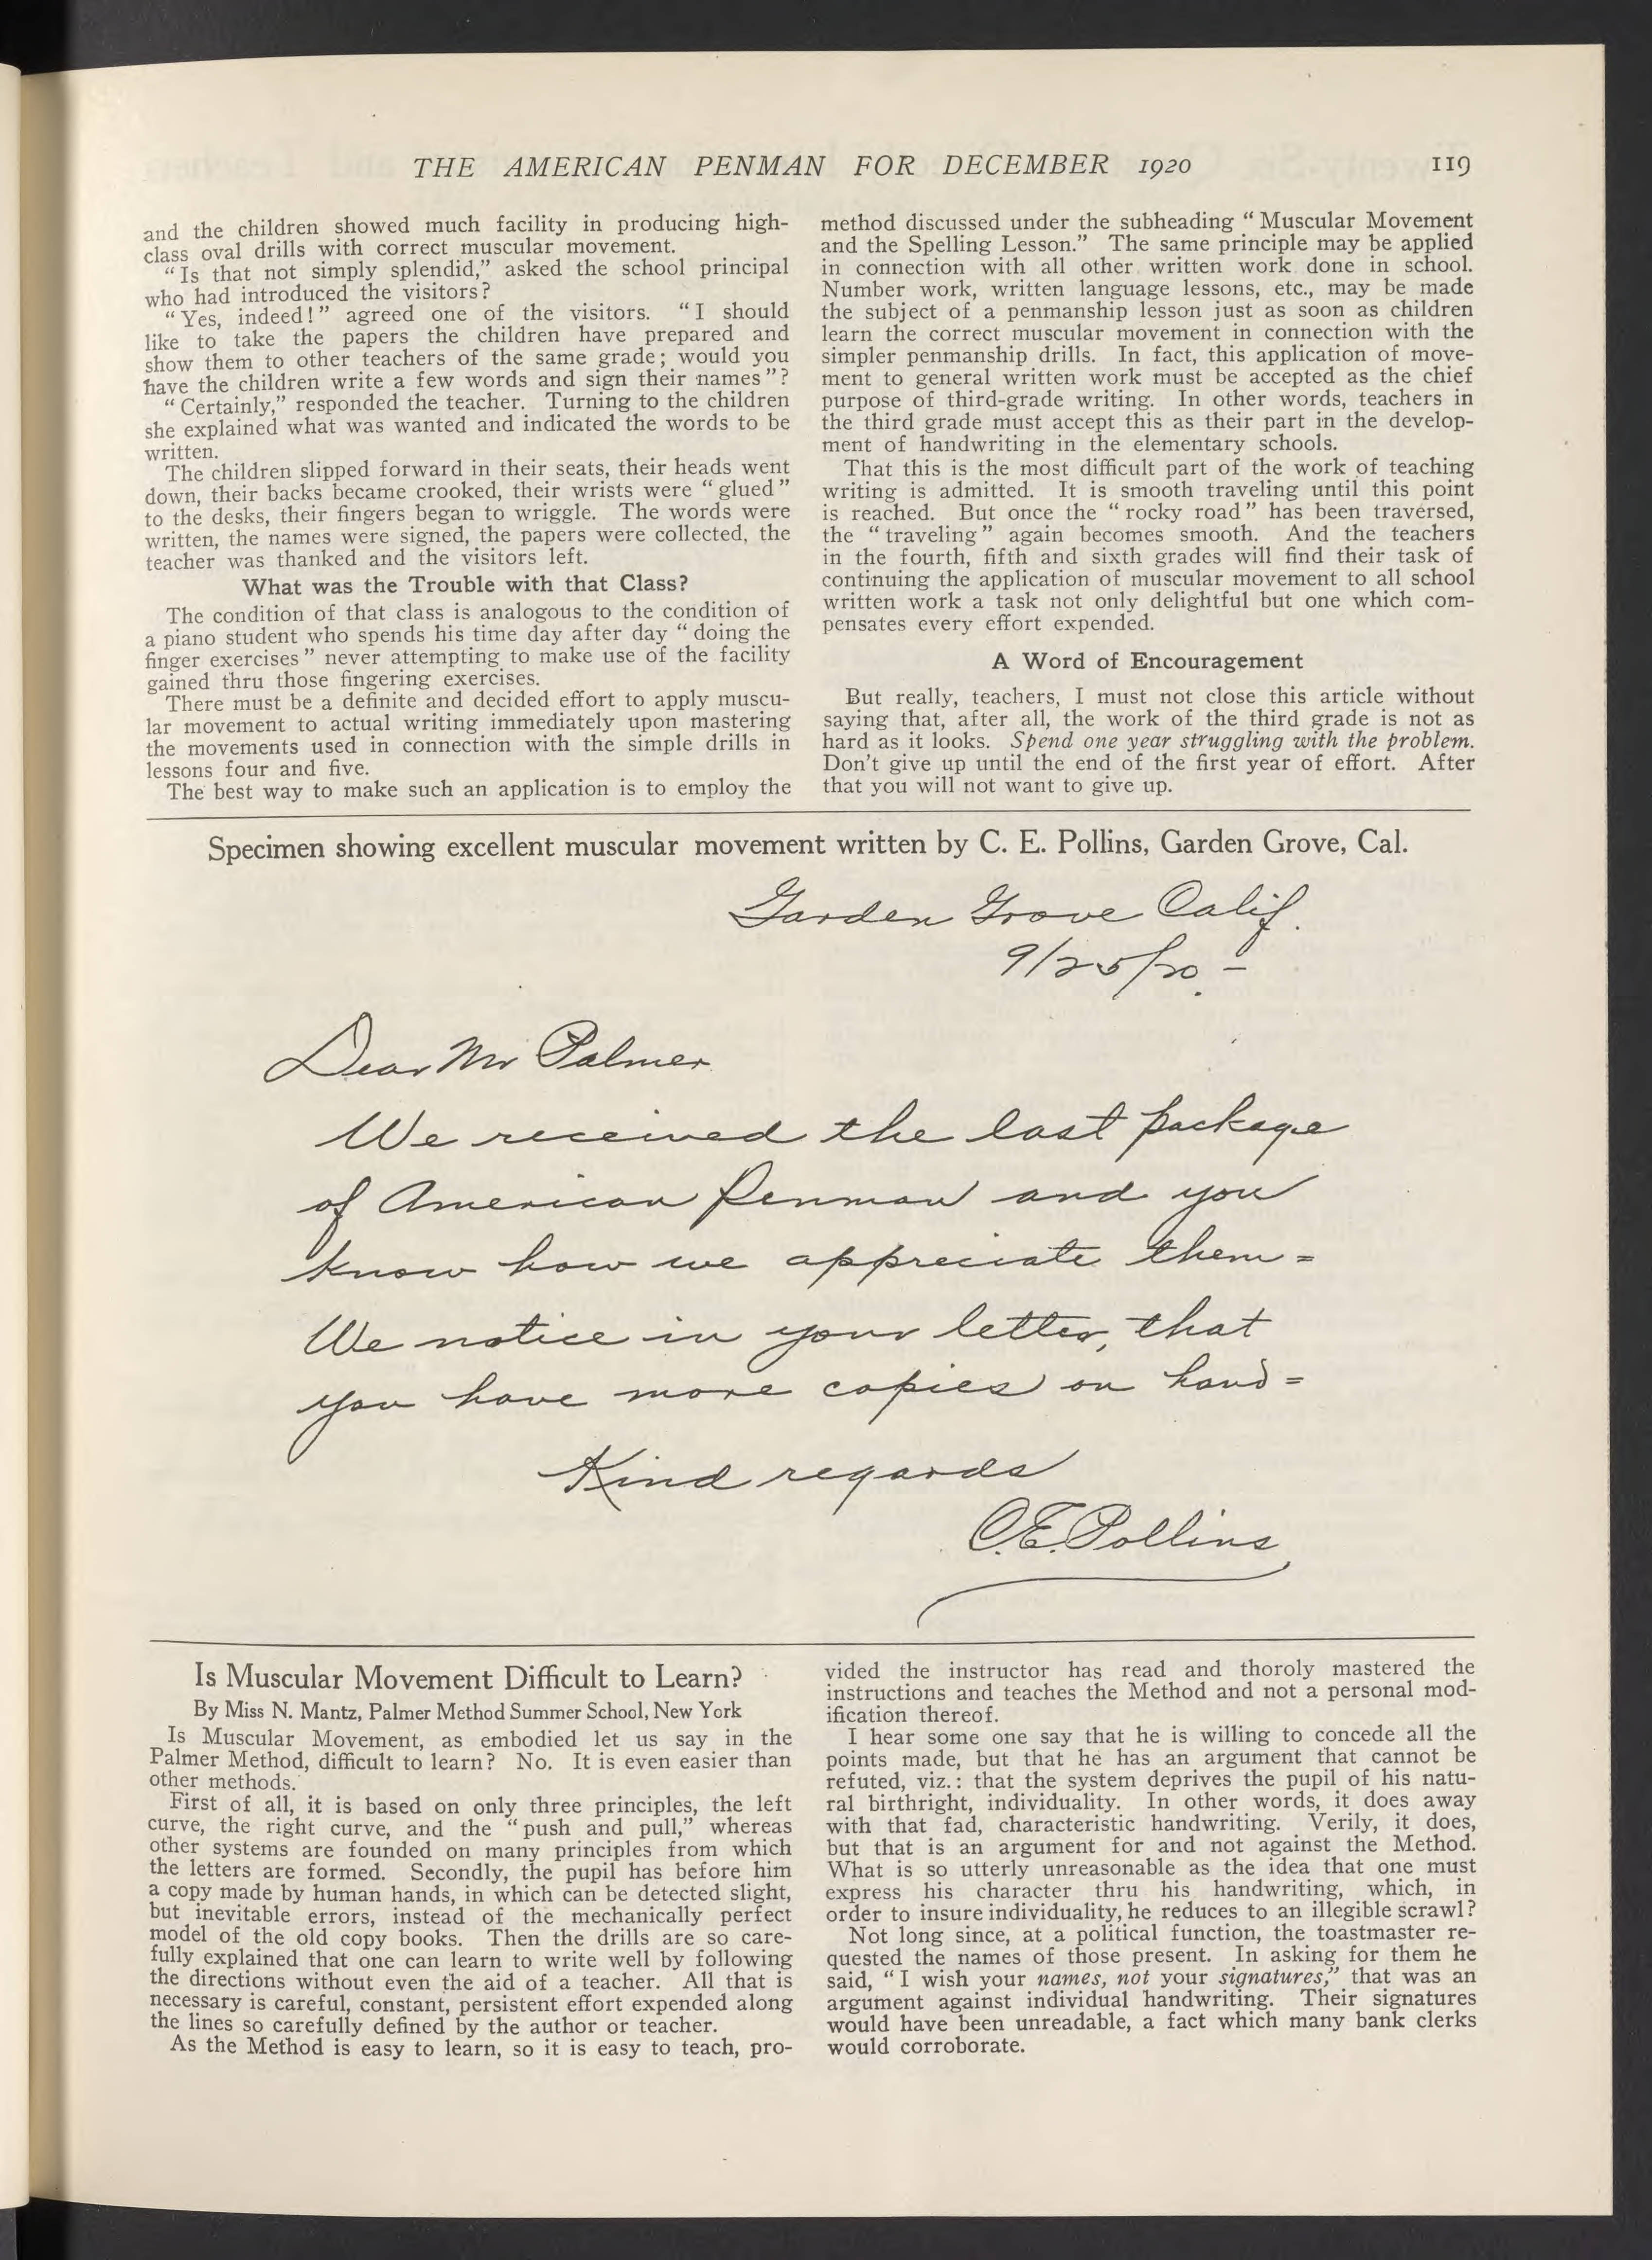 THE AMERICAN PENMAN FOR DECEMBER 1920 119
and the children showed much facility in producing high-
class oval drills with correct muscular movement.
“Is that not simply splendid,” asked the school principal
who had introduced the visitors?
“Yes, indeed!” agreed one of the visitors. “I should
like to take the papers the children have prepared and
show them to other teachers of the same grade; would you
have the children write a few words and sign their names”?
“Certainly,” responded the teacher. Turning to the children
she explained what was wanted and indicated the words to be
written.
The children slipped forward in their seats, their heads went
down, their backs became crooked, their wrists were “glued”
to the desks, their fingers began to wriggle. The words were
written, the names were signed, the papers were collected, the
teacher was thanked and the visitors left.
What was the Trouble with that Class?
The condition of that class is analogous to the condition of
a piano student who spends his time day after day “doing the
finger exercises” never attempting to make use of the facility
gained thru those fingering exercises.
There must be a definite and decided effort to apply muscu-
lar movement to actual writing immediately upon mastering
the movements used in connection with the simple drills in
lessons four and five.
The best way to make such an application is to employ the
method discussed under the subheading “Muscular Movement
and the Spelling Lesson.” The same principle may be applied
in connection with all other written work done in school.
Number work, written language lessons, etc., may be made
the subject of a penmanship lesson just as soon as children
learn the correct muscular movement in connection with the
simpler penmanship drills. In fact, this application of move-
ment to general written work must be accepted as the chief
purpose of third-grade writing. In other words, teachers in
the third grade must accept this as their part in the develop-
ment of handwriting in the elementary schools.
That this is the most difficult part of the work of teaching
writing is admitted. It is smooth traveling until this point
is reached. But once the “rocky road” has been traversed,
the “traveling” again becomes smooth. And the teachers
in the fourth, fifth and sixth grades will find their task of
continuing the application of muscular movement to all school
written work a task not only delightful but one which com-
pensates every effort expended.
A Word of Encouragement
But really, teachers, I must not close this article without
saying that, after all, the work of the third grade is not as
hard as it looks. Spend one year struggling with the problem.
Don’t give up until the end of the first year of effort. After
that you will not want to give up.
Specimen showing excellent muscular movement written by C. E. Pollins, Garden Grove, Cal.
Garden Grove Calif.
9/25/20. –
Dear Mr Palmer
We received the last package
of American Penman and you
know how we appreciate them =
We notice in your letter, that
you have more copies on hand =
Kind regards
C.E. Pollins
Is Muscular Movement Difficult to Learn?
By Miss N. Mantz, Palmer Method Summer School, New York
Is Muscular Movement, as embodied let us say in the
Palmer Method, difficult to learn? No. It is even easier than
other methods.
First of all, it is based on only three principles, the left
curve, the right curve, and the “push and pull,” whereas
other systems are founded on many principles from which
the letters are formed. Secondly, the pupil has before him
a copy made by human hands, in which can be detected slight,
but inevitable errors, instead of the mechanically perfect
model of the old copy books. Then the drills are so care-
fully explained that one can learn to write well by following
the directions without even the aid of a teacher. All that is
necessary is careful, constant, persistent effort expended along
the lines so carefully defined by the author or teacher.
As the Method is easy to learn, so it is easy to teach, pro-
vided the instructor has read and thoroly mastered the
instructions and teaches the Method and not a personal mod-
ification thereof.
I hear some one say that he is willing to concede all the
points made, but that he has an argument that cannot be
refuted, viz.: that the system deprives the pupil of his natu-
ral birthright, individuality. In other words, it does away
with that fad, characteristic handwriting. Verily, it does,
but that is an argument for and not against the Method.
What is so utterly unreasonable as the idea that one must
express his character thru his handwriting, which, in
order to insure individuality, he reduces to an illegible scrawl?
Not long since, at a political function, the toastmaster re-
quested the names of those present. In asking for them he
said, “I wish your names, not your signatures,” that was an
argument against individual handwriting. Their signatures
would have been unreadable, a fact which many bank clerks
would corroborate.